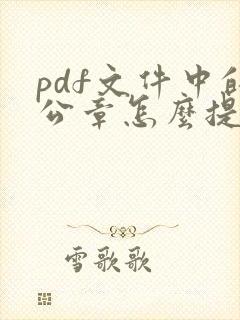 pdf文件中的
公章怎麼提
雪歌歌